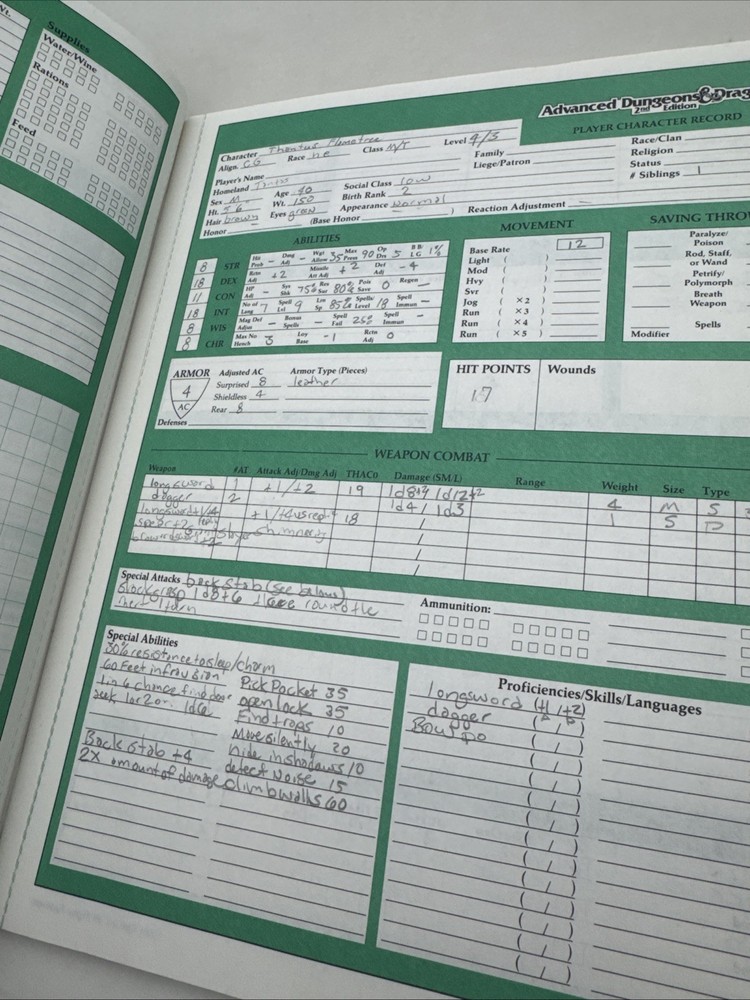 Wt.
Supplies
Water/Wine
Rations
Feed
Advanced Dungeons & Drag
2nd Edition
PLAYER CHARACTER RECORD
Character Flametree Class M/T Level 4/3
Align. CG Race he
Player's Name
Homeland
Sex M Age 40 Social Class low
Ht. 5'6 Wt. 150 Birth Rank 2
Hair brown Eyes green Appearance normal
Honor (Base Honor ) Reaction Adjustment
Family
Liege/Patron
Race/Clan
Religion
Status
# Siblings 1
ABILITIES
8 STR Hit Prob - Dmg Adj - Wgt Allow 35 Max Press 90 Op Drs 5 BB/LG 1%
18 DEX Rctn Adj +2 Missile Att Adj +2 Def Adj -4
11 CON HP Adj - Sys Shk 75% Res Sur 80% Pois Save 0 Regen -
18 INT No of Lang 7 Spell Lvl 9 Lrn Sp 85% Spells/Level 18 Spell Immun -
8 WIS Mag Def Adjus - Bonus Spells - Spell Fail 25% Spell Immun -
8 CHR Max No Hench 3 Loy Base -1 Rctn Adj 0
MOVEMENT
Base Rate 12
Light ( )
Mod ( )
Hvy ( )
Svr ( )
Jog (×2)
Run (×3)
Run (×4)
Run (×5)
SAVING THRO
Paralyze/
Poison
Rod, Staff,
or Wand
Petrify/
Polymorph
Breath
Weapon
Spells
Modifier
ARMOR Adjusted AC Armor Type (Pieces)
4 AC
Surprised 8 leather
Shieldless 4
Rear 8
Defenses
HIT POINTS Wounds
17
WEAPON COMBAT
Weapon #AT Attack Adj/Dmg Adj THAC0 Damage (SM/L) Range Weight Size Type
longsword 1 +1/+2 19 1d8+2 / 1d12+2 4 M S
dagger 2 1d4 / 1d3 1 S P
longsword +1/+4 +1/+4 vs rept 18
Special Attacks back stab (see below)
Ammunition:
Special Abilities
30% resistance to sleep/charm
60 feet infravision Pick Pocket 35
open lock 35
Find traps 10
Move silently 20
Back stab +4 hide in shadows 10
2X amount of damage detect Noise 15
climb walls 60
Proficiencies/Skills/Languages
longsword (+1/+2)
dagger